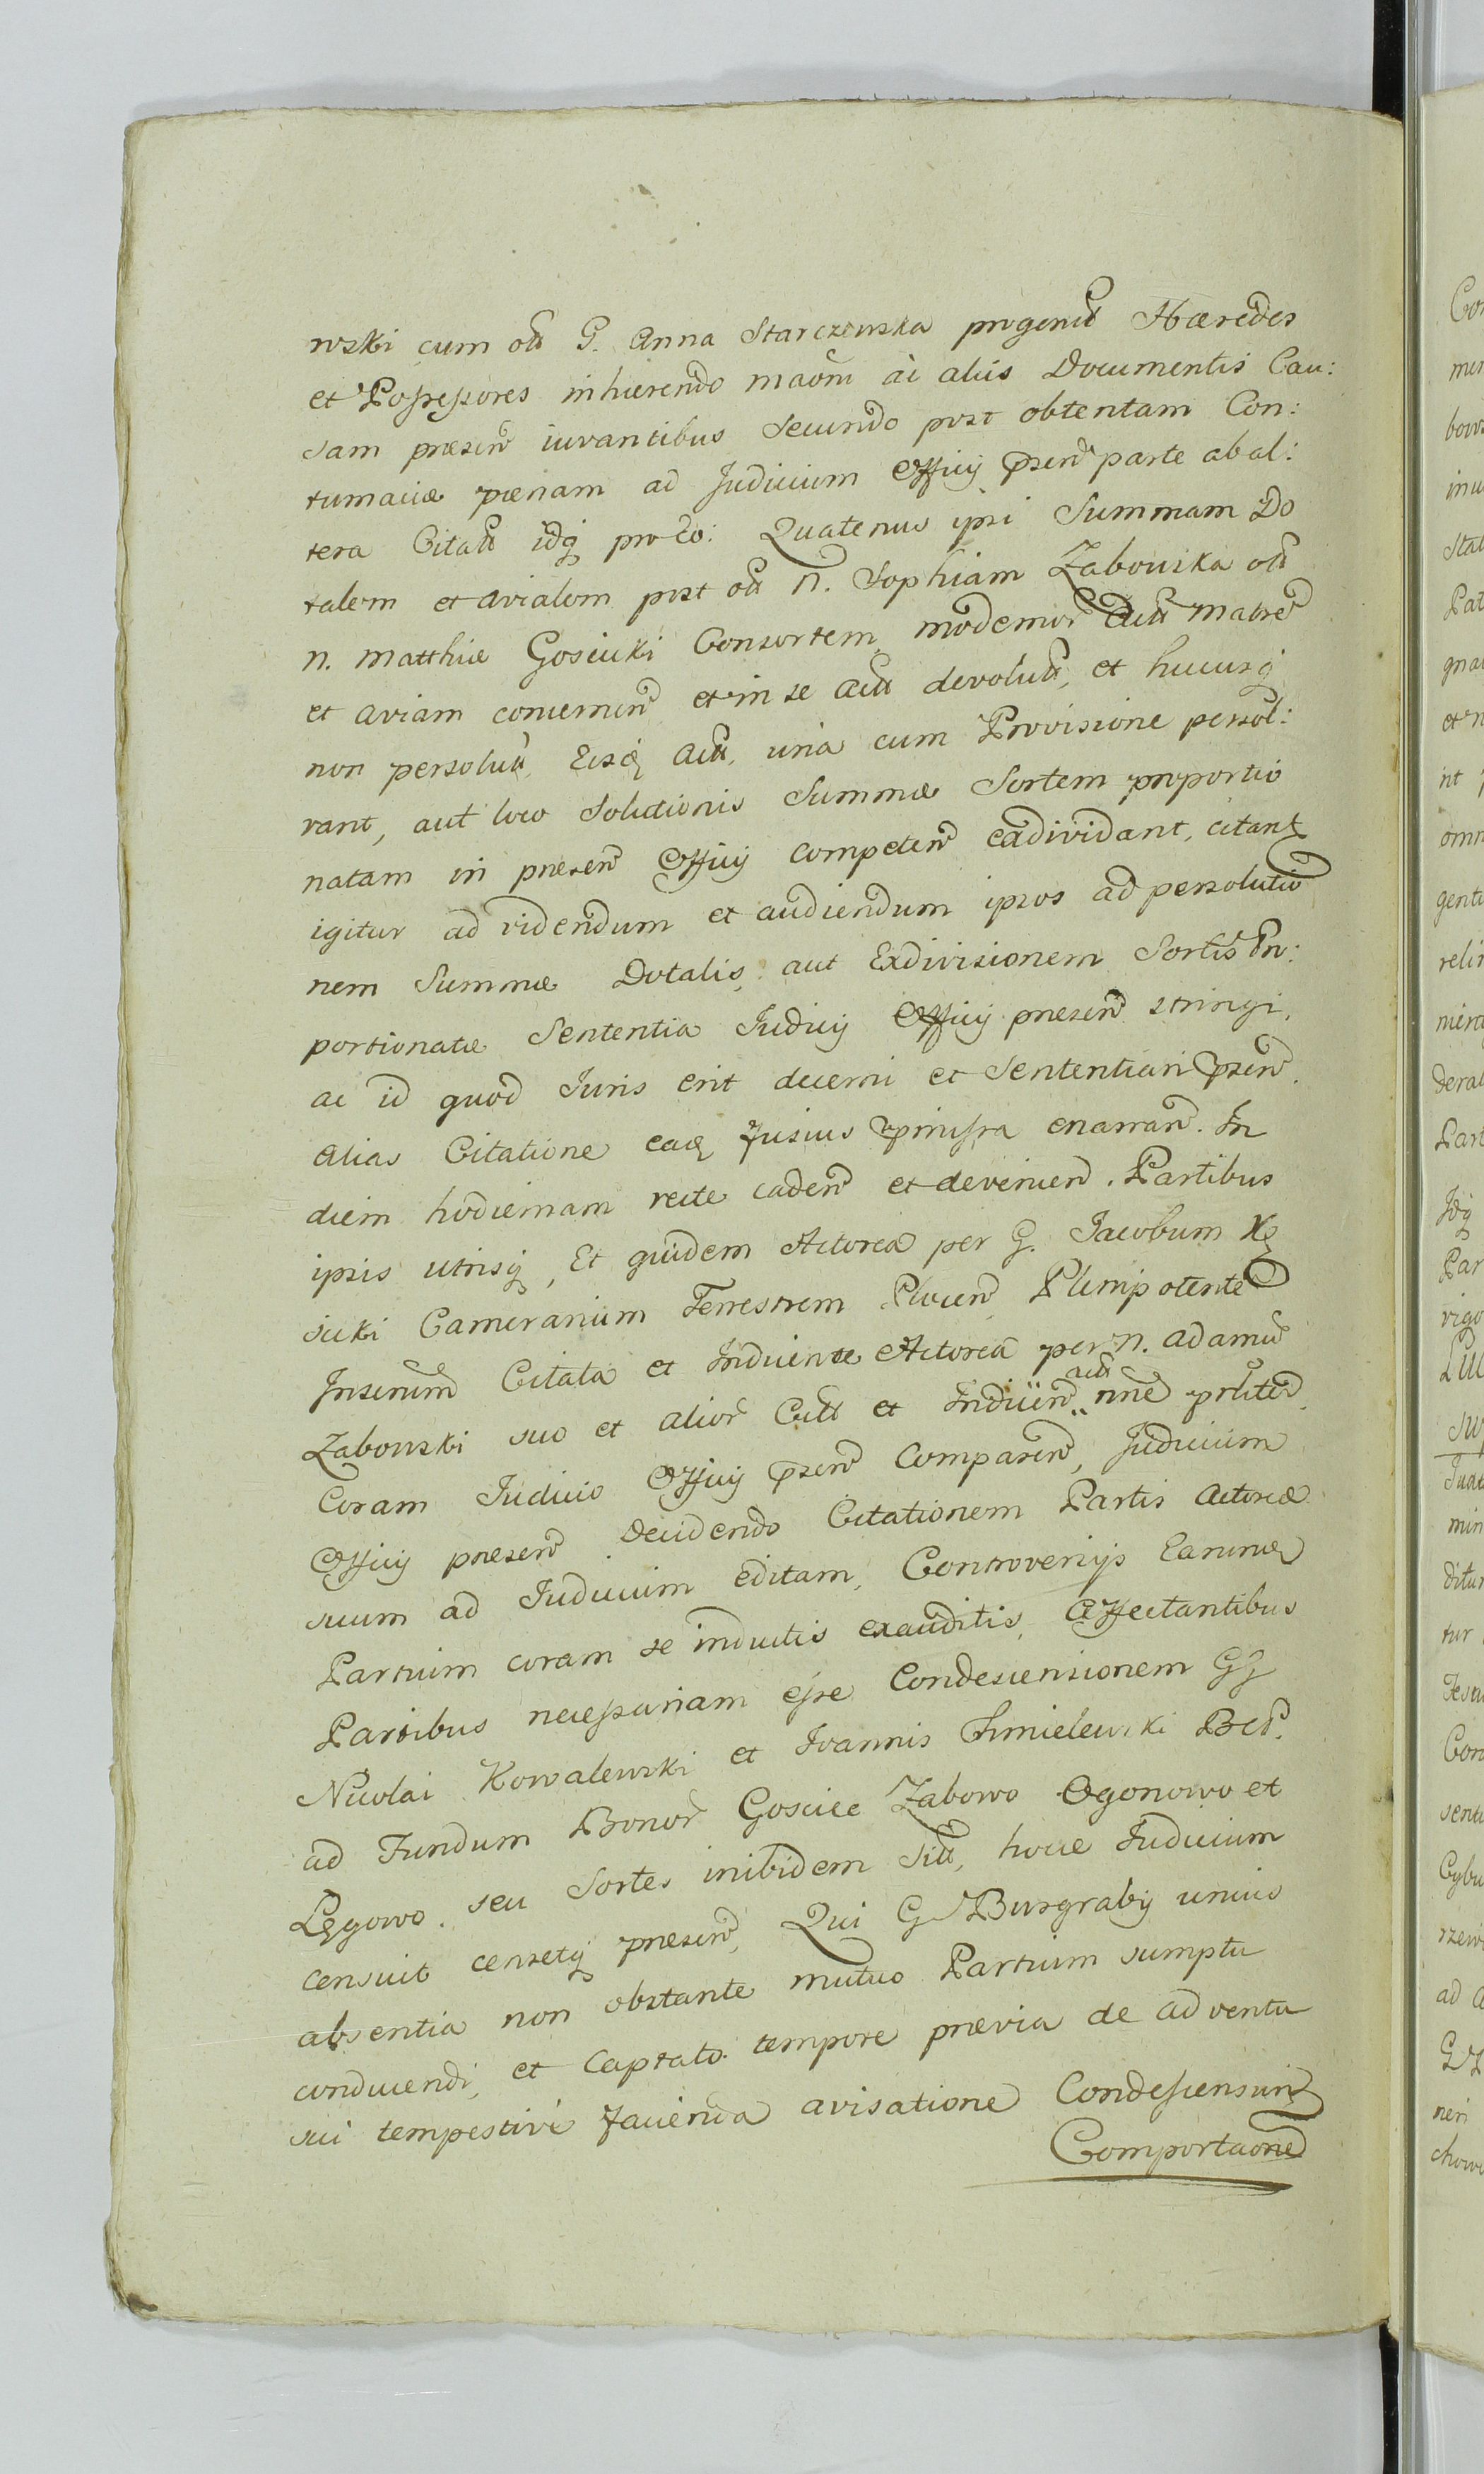 wski cum olt G. Anna Starczewska progenit Hæredes
et Possessores inhærendo maõni ac aliis Documentis Cau:
sam præsen iuvantibus Secundo post obtentam Con:
tumaciæ pœnam ad Judicium Officij psen parte ab al:
tera Citatt idq pro eo: Quatenus ipsi Summam Do
talem et avialem post olt N. Sophiam Zabowska olt
N. Matthiæ Gosicki Consortem, modernor Actt Matre
et aviam concernen et in se Actt devolutt, et hucusq
non persolutt, Eisdq Actt, una cum Provisione persol:
vant, aut loco Solutionis Summæ Sortem proportio
natam in præsen Officij competen exdividant, citant
igitur ad videndum et audiendum ipsos ad persolutio
nem Summæ Dotalis, aut Exdivisionem Sortis Pro:
portionatæ Sententia Judicij Officij præsen stringi,
ac id quod Juris erit decerni et Sententiari psen.
Alias Citatione eadq fusius præmissa enarran. In
diem hodiernam recte caden et devenien. Partibus
ipsis utrisq, Et quidem Actorea per G. Jacobum Kę
sicki Camerarium Terrestrem Plocen Plenipotente
Inserum Citata et Inducente Actorea per N. Adamu
Zabowski suo et alior Citt et Inducen actt nne prliter
Coram Judicio Officij psen Comparen, Judicium
Officij præsen Decidendo Citationem Partis Actoreæ
suum ad Judicium editam, Controversijs Earund
Partium coram se inductis exauditis, Affectantibus
Partibus necessariam esse Condescensionem GG
Nicolai Kowalewski et Joannis Chmielewski Bcd.
ad Fundum Bonor Goscice Zabowo Ogonowo et
Lęgowo seu Sortes inibidem Sitt, hocce Judicium
censuit censetq præsen, Qui G Burgrabij unius
absentia non obstante mutuo Partium sumptu
conducendi, et Captato tempore prævia de adventu
sui tempestive facienda avisatione Condescensuri
Comportaone